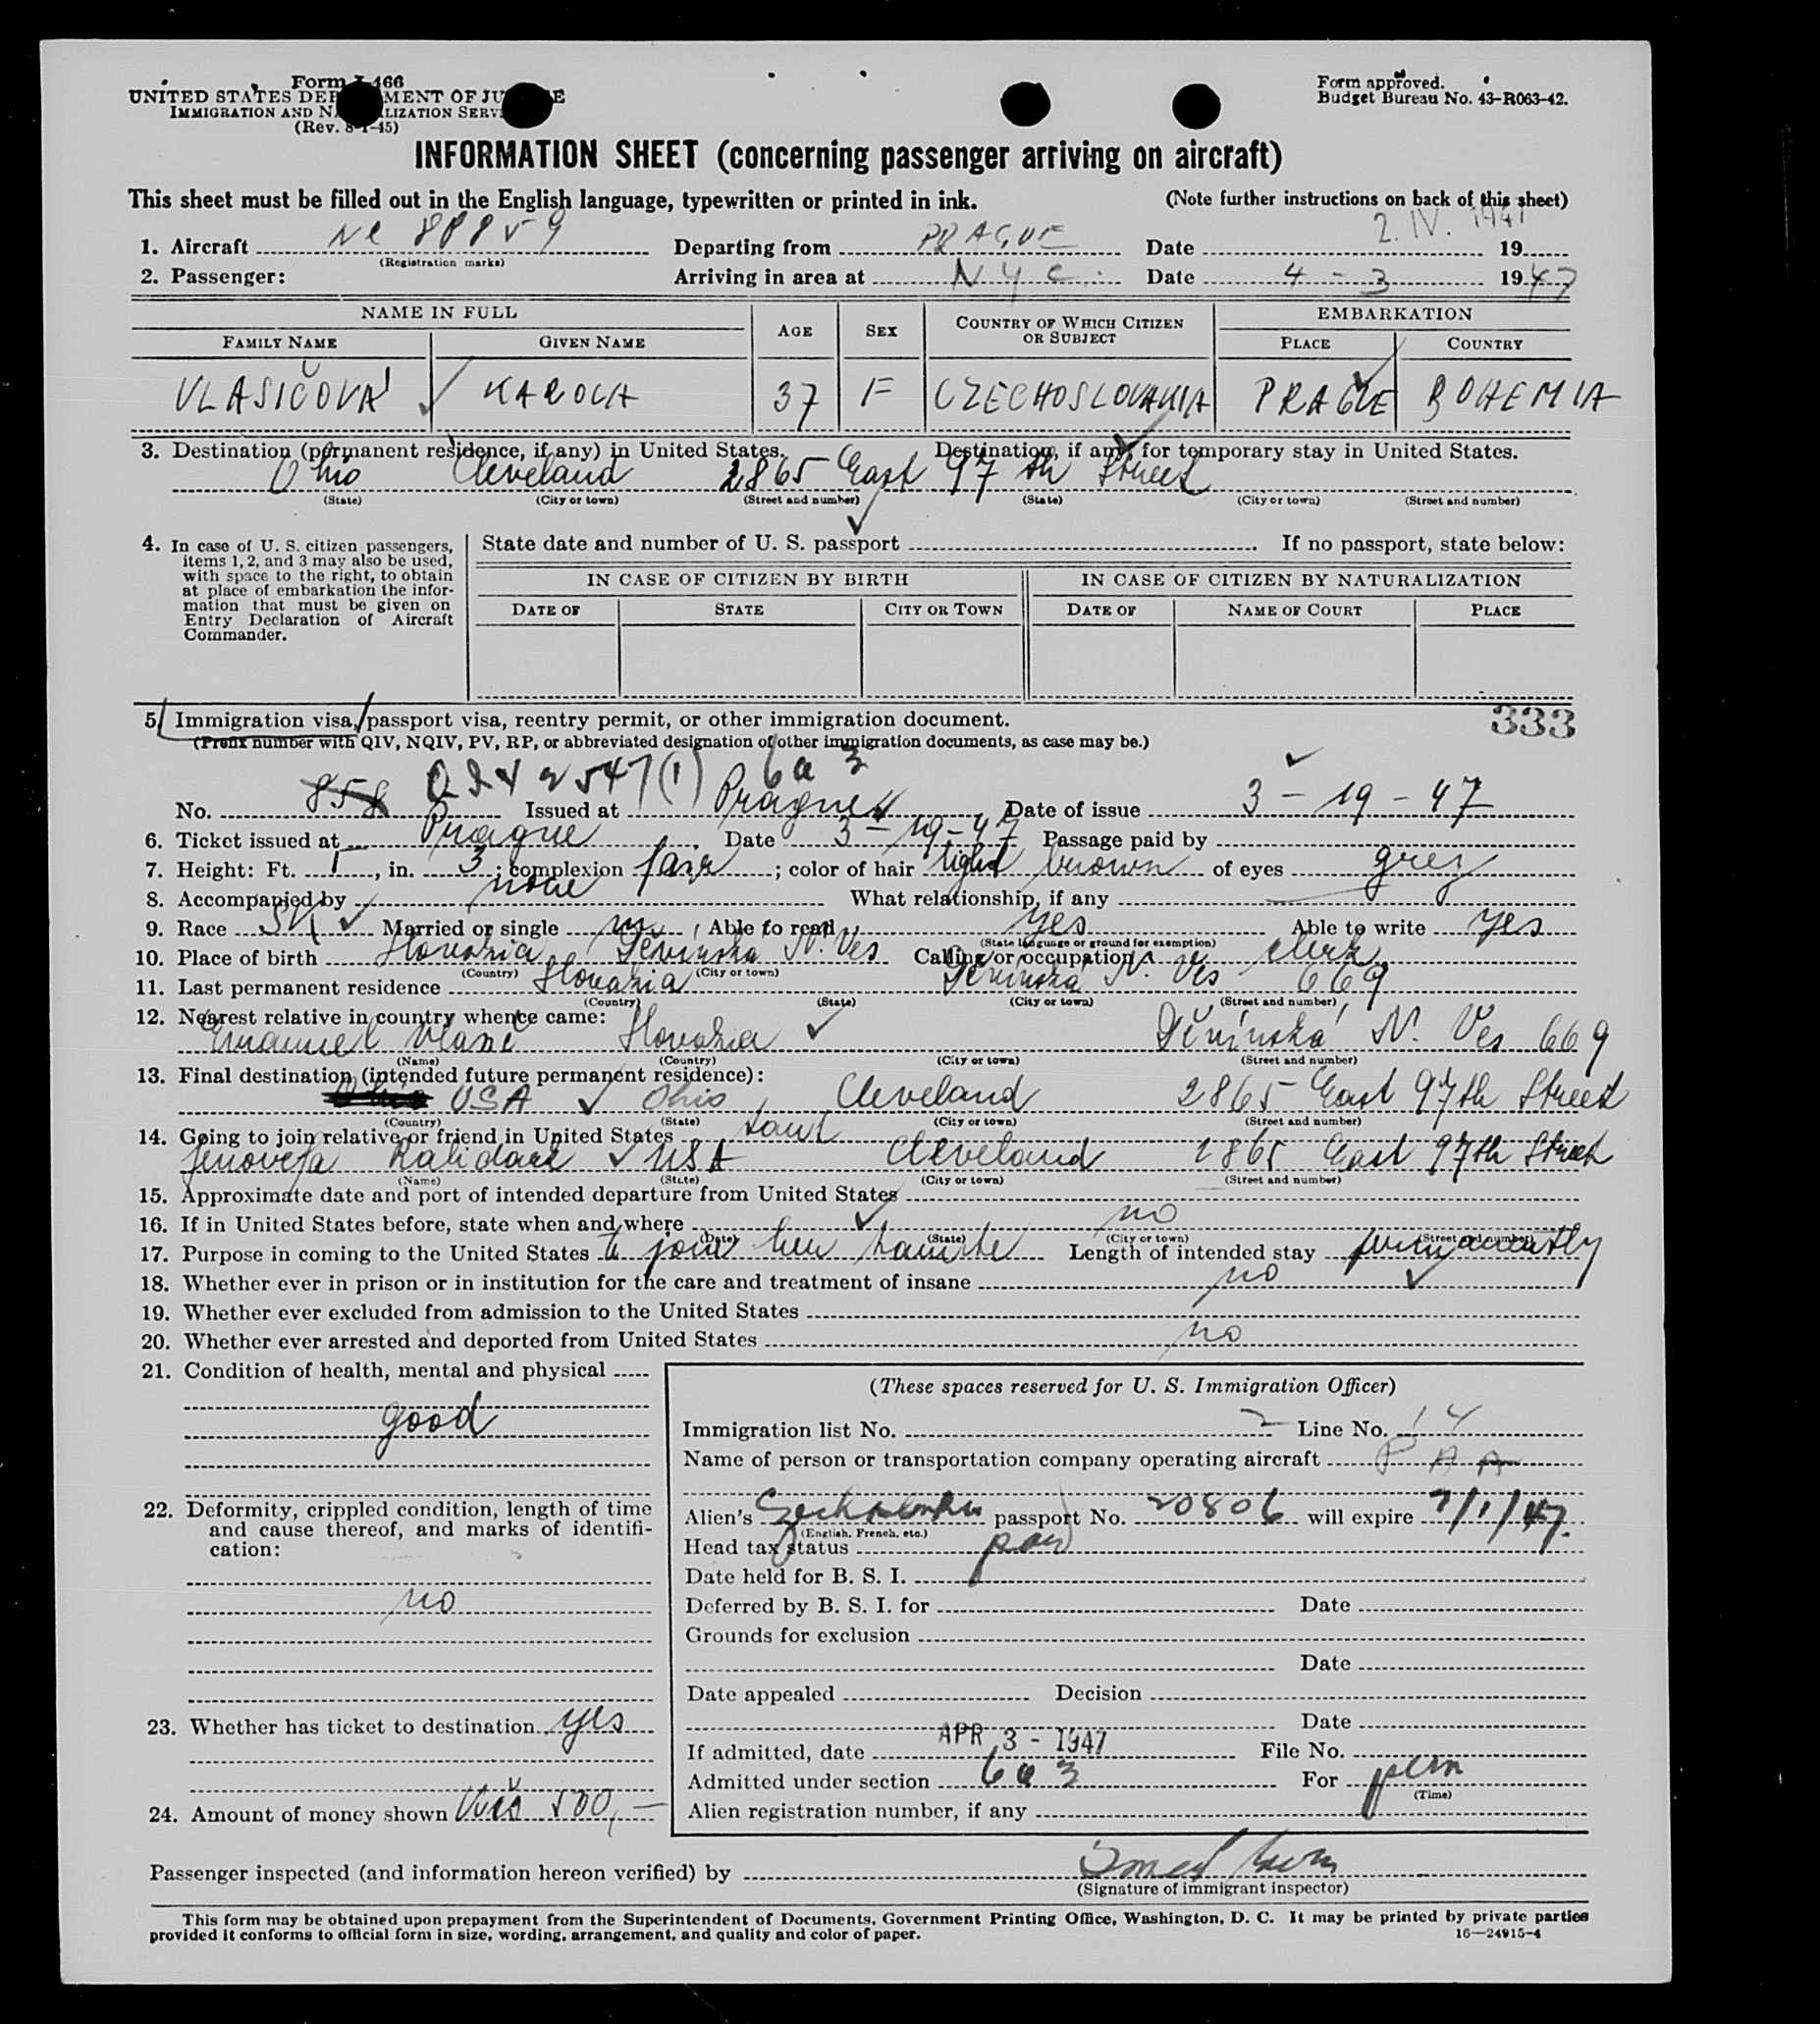 Form 466
UNITED STATES DEP MENT OF JU E
IMMIGRATION AND NA LIZATION SERV
(Rev. 8-1-45)
Form approved.
Budget Bureau No. 43-R063-42.
INFORMATION SHEET (concerning passenger arriving on aircraft)
This sheet must be filled out in the English language, typewritten or printed in ink.
(Note further instructions on back of this sheet)
1. Aircraft NC 88859 Departing from PRAGUE Date 2. IV. 1947 19
(Registration marks)
2. Passenger: Arriving in area at NYC. Date 4-3 1947
NAME IN FULL AGE SEX COUNTRY OF WHICH CITIZEN OR SUBJECT EMBARKATION
FAMILY NAME GIVEN NAME PLACE COUNTRY
VLASIČOVÁ KAROLA 37 F CZECHOSLOVAKIA PRAGUE BOHEMIA
3. Destination (permanent residence, if any) in United States. Destination, if any, for temporary stay in United States.
Ohio Cleveland 2865 East 97th Street
(State) (City or town) (Street and number) (State) (City or town) (Street and number)
4. In case of U. S. citizen passengers, items 1, 2, and 3 may also be used, with space to the right, to obtain at place of embarkation the information that must be given on Entry Declaration of Aircraft Commander.
State date and number of U. S. passport . If no passport, state below:
IN CASE OF CITIZEN BY BIRTH IN CASE OF CITIZEN BY NATURALIZATION
DATE OF STATE CITY OR TOWN DATE OF NAME OF COURT PLACE
333
5. Immigration visa, passport visa, reentry permit, or other immigration document.
(Prefix number with QIV, NQIV, PV, RP, or abbreviated designation of other immigration documents, as case may be.)
6a3
No. 858 QIV 2547(1) Issued at Prague Date of issue 3-19-47
6. Ticket issued at Prague Date 3-19-47 Passage paid by
7. Height: Ft. 5, in. 3; complexion fair; color of hair light brown of eyes grey
8. Accompanied by none What relationship, if any
9. Race SK Married or single m Able to read yes Able to write yes
(State language or ground for exemption)
10. Place of birth Slovakia Děvinská N. Ves Calling or occupation clerk
(Country) (City or town)
11. Last permanent residence Slovakia Děvinská N. Ves 669
(Country) (State) (City or town) (Street and number)
12. Nearest relative in country whence came:
Emanuel Vlasič Slovakia Děvínská N. Ves 669
(Name) (Country) (City or town) (Street and number)
13. Final destination (intended future permanent residence):
USA Ohio Cleveland 2865 East 97th Street
(Country) (State) (City or town) (Street and number)
14. Going to join relative or friend in United States
Jenovefa USA Cleveland 2865 East 97th Street
(Name) (State) (City or town) (Street and number)
15. Approximate date and port of intended departure from United States
16. If in United States before, state when and where no
(Date) (State) (City or town) (Street and number)
17. Purpose in coming to the United States to join her Length of intended stay permanently
18. Whether ever in prison or in institution for the care and treatment of insane no
19. Whether ever excluded from admission to the United States
20. Whether ever arrested and deported from United States no
21. Condition of health, mental and physical
good
22. Deformity, crippled condition, length of time and cause thereof, and marks of identification:
no
23. Whether has ticket to destination yes
24. Amount of money shown Kčs 500,—
(These spaces reserved for U. S. Immigration Officer)
Immigration list No. 2 Line No. 14
Name of person or transportation company operating aircraft P A A
Alien's passport No. 20806 will expire 7/1/47.
(English, French, etc.)
Head tax status paid
Date held for B. S. I.
Deferred by B. S. I. for Date
Grounds for exclusion
Date
Date appealed Decision
Date
If admitted, date APR 3 - 1947 File No.
Admitted under section 6a3 For perm
(Time)
Alien registration number, if any
Passenger inspected (and information hereon verified) by
(Signature of immigrant inspector)
This form may be obtained upon prepayment from the Superintendent of Documents, Government Printing Office, Washington, D. C. It may be printed by private parties
provided it conforms to official form in size, wording, arrangement, and quality and color of paper.
16—24915-4